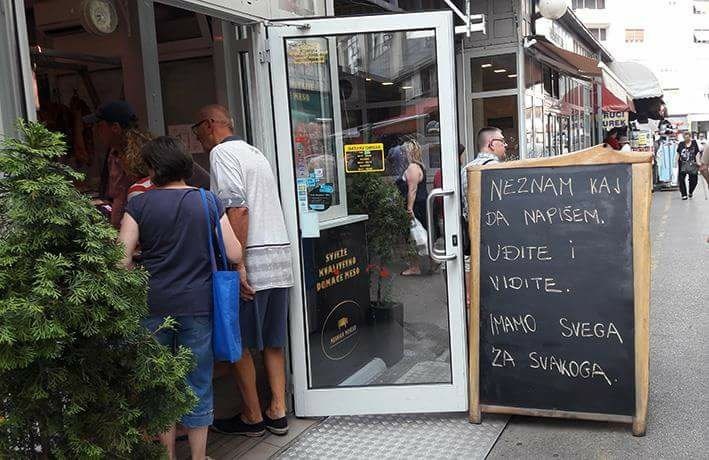 NEZNAM KAJ
DA NAPIŠEM.
UĐITE I
VIDITE.
IMAMO SVEGA
ZA SVAKOGA.
SVJEŽE
KVALITETNO
DOMAĆE MESO